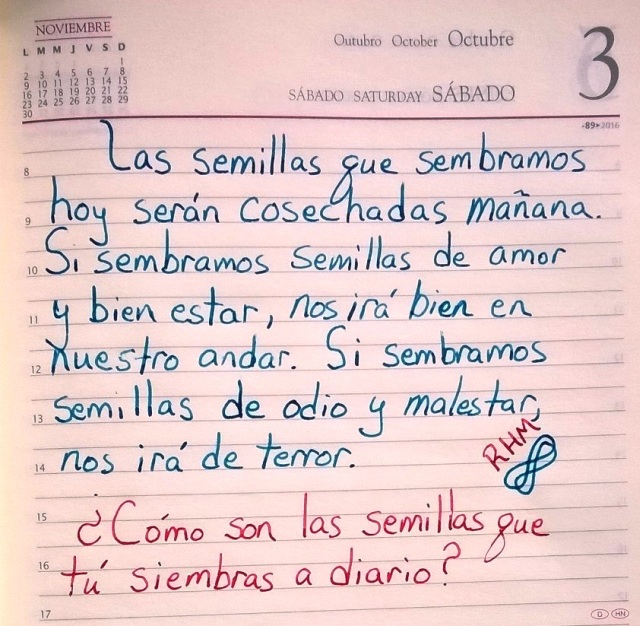 NOVIEMBRE
L M M J V S D
1
2 3 4 5 6 7 8
9 10 11 12 13 14 15
16 17 18 19 20 21 22
23 24 25 26 27 28 29
30
Outubro October Octubre
3
SÁBADO SATURDAY SÁBADO
-89▸2016
8 Las semillas que sembramos
9 hoy serán cosechadas mañana.
10 Si sembramos semillas de amor
11 y bien estar, nos irá bien en
12 nuestro andar. Si sembramos
13 semillas de odio y malestar,
14 nos irá de terror.
RHM
15 ¿Cómo son las semillas que
16 tú siembras a diario?
17
D HN